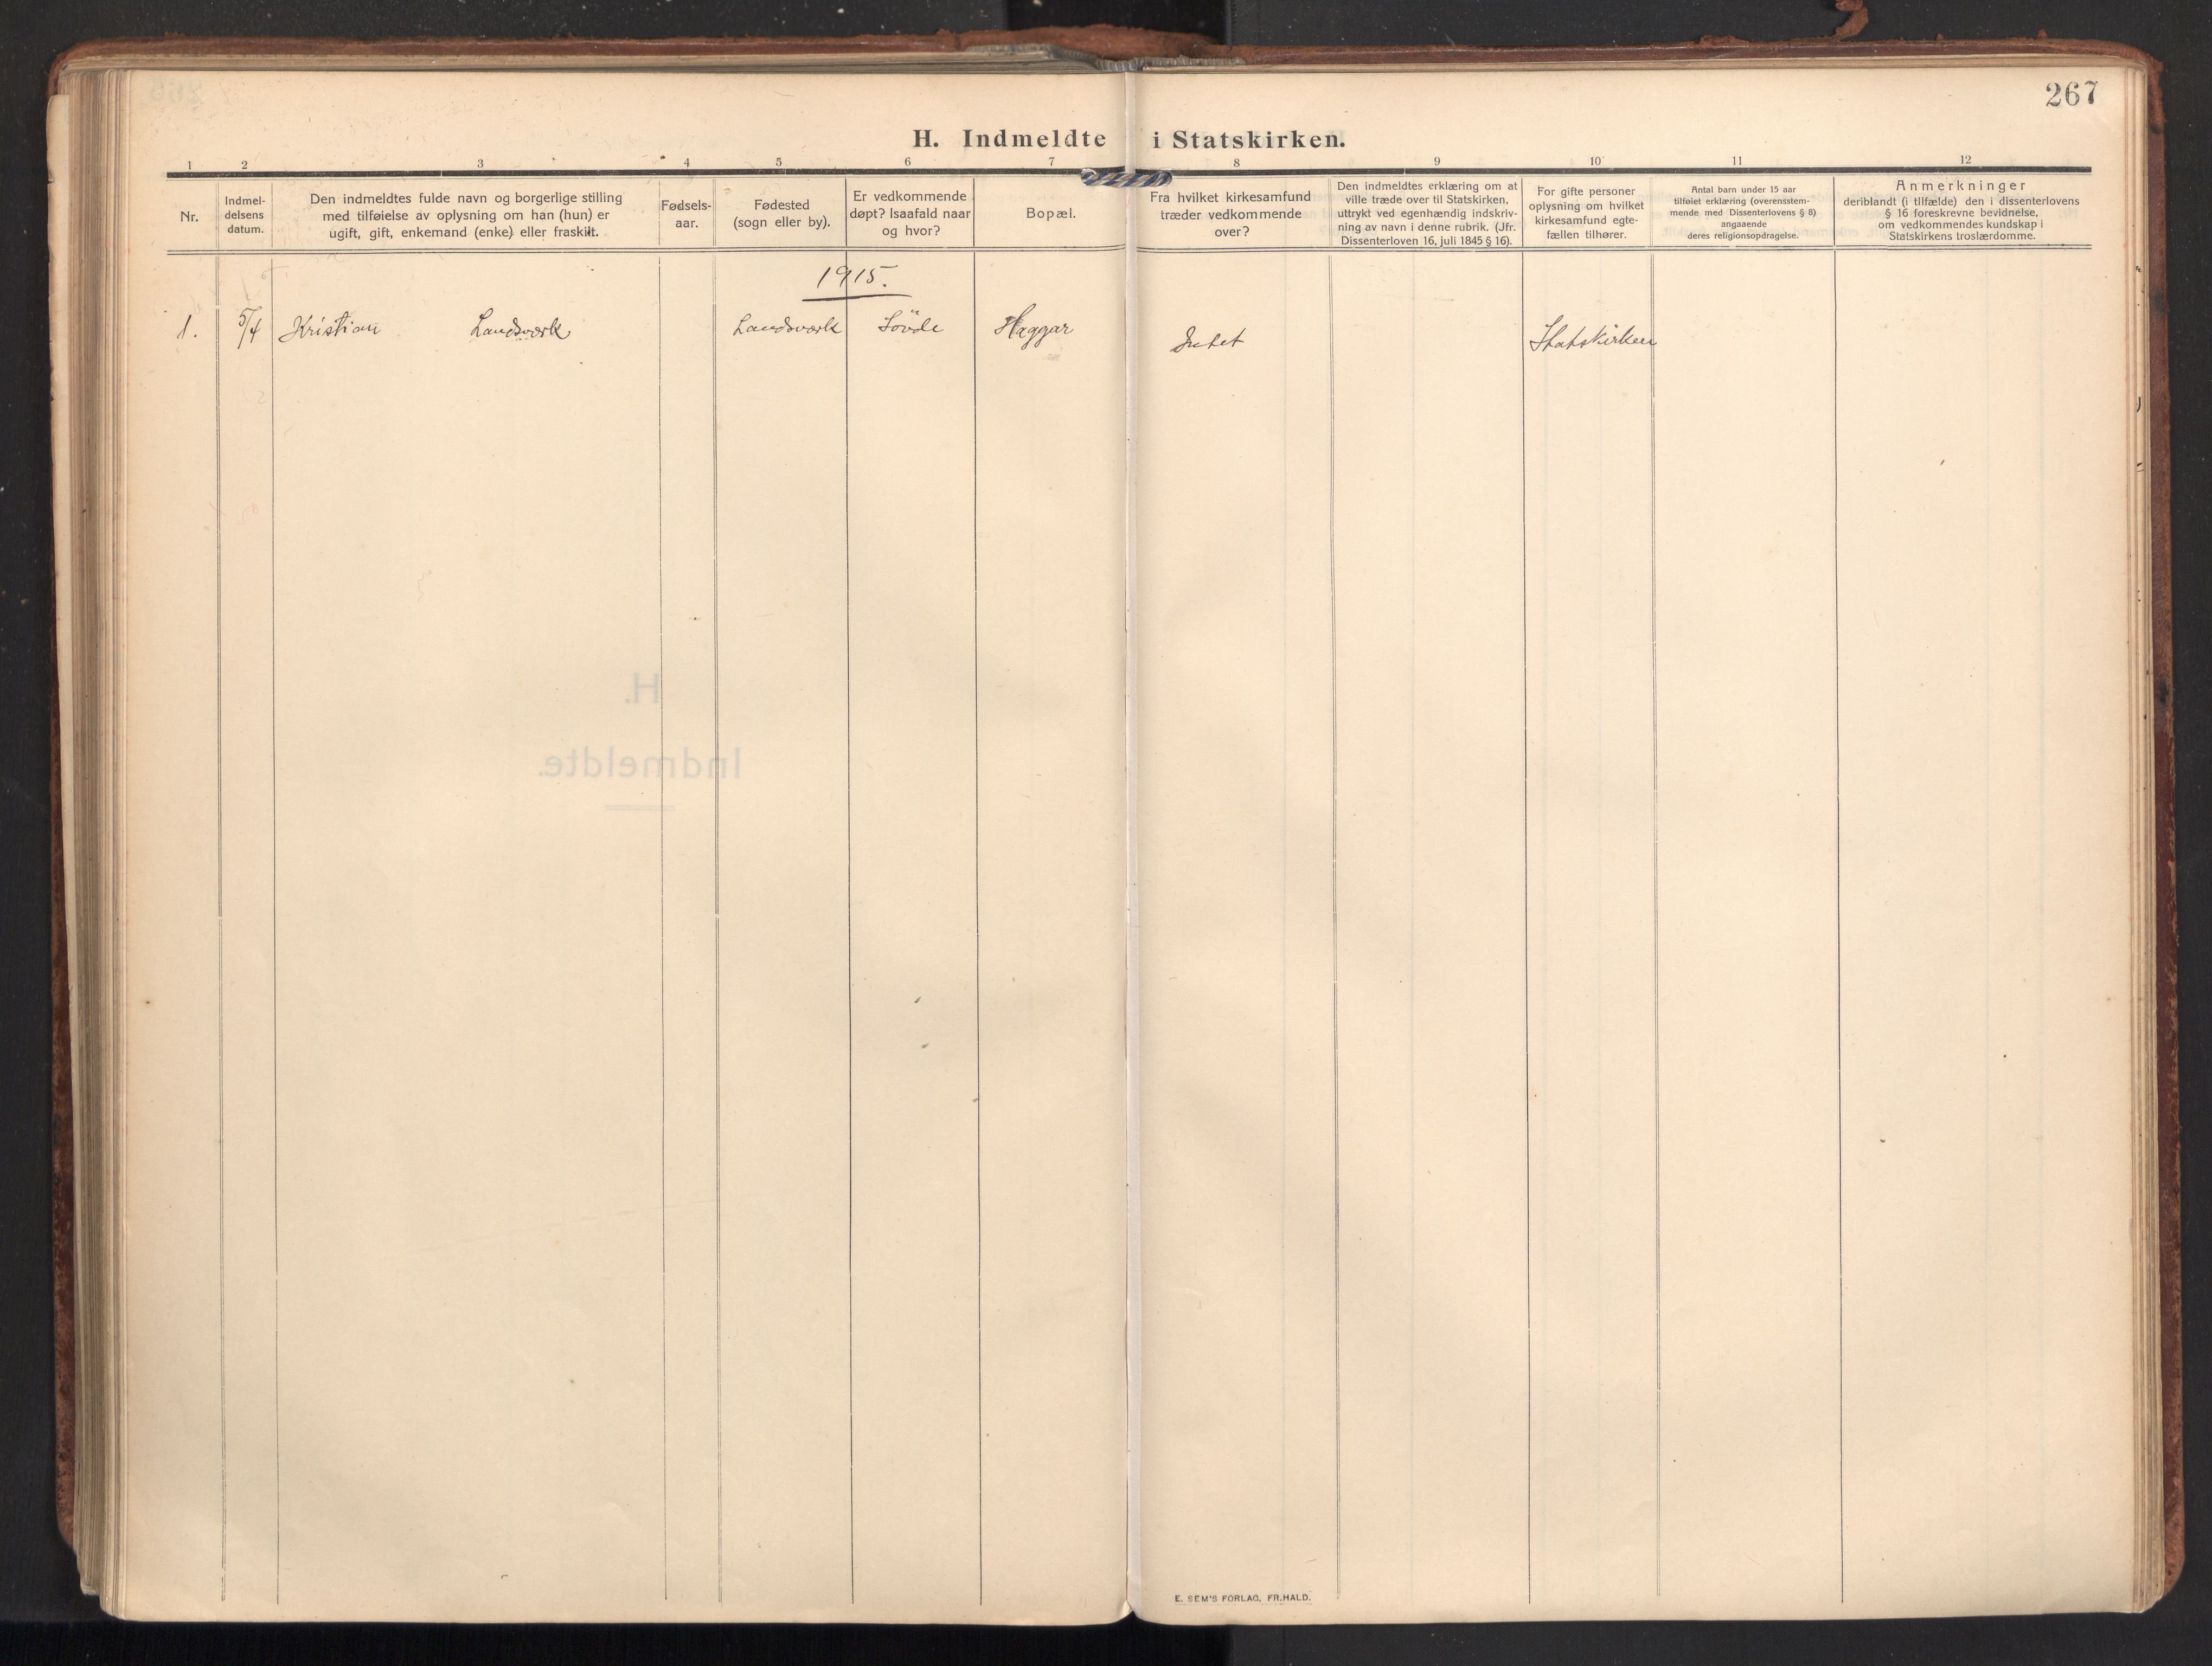 267
H. Indmeldte i Statskirken.
1 2 3 4 5 6 7 8 9 10 11 12
Nr.
Indmel-
delsens
datum.
Den indmeldtes fulde navn og borgerlige stilling
med tilføielse av oplysning om han (hun) er
ugift, gift, enkemand (enke) eller fraskilt.
Fødsels-
aar.
Fødested
(sogn eller by).
Er vedkommende
døpt? Isaafald naar
og hvor?
Bopæl.
Fra hvilket kirkesamfund
træder vedkommende
over?
Den indmeldtes erklæring om at
ville træde over til Statskirken,
uttrykt ved egenhændig indskriv-
ning av navn i denne rubrik. (Jfr.
Dissenterloven 16, juli 1845 § 16).
For gifte personer
oplysning om hvilket
kirkesamfund egte-
fællen tilhører.
Antal barn under 15 aar
tilføiet erklæring (overensstem-
mende med Dissenterlovens § 8)
angaaende
deres religionsopdragelse.
Anmerkninger
deriblandt (i tilfælde) den i dissenterlovens
§ 16 foreskrevne bevidnelse,
om vedkommendes kundskap i
Statskirkens troslærdomme.
1915.
1. 5/4 Kristian Landsværk Landsværk Sövde Haggar Intet Statskirken
H.
Indmeldte.
E. SEM'S FORLAG, FR.HALD.